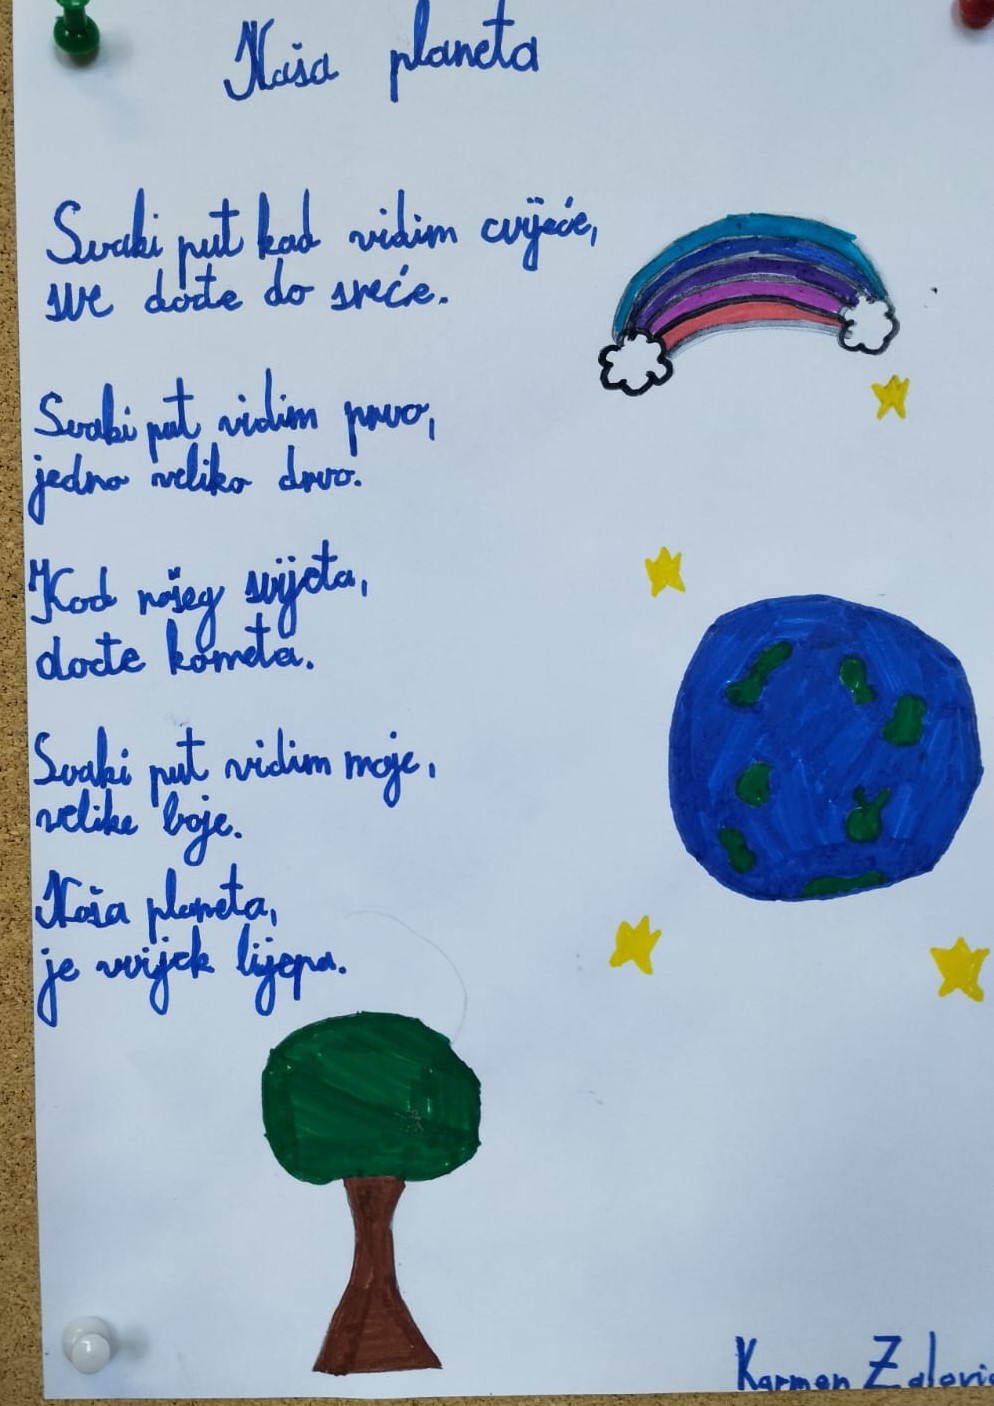 Naša planeta
Svaki put kad vidim cvijeće,
sve dođe do sreće.
Svaki put vidim prvo,
jedno veliko drvo.
Kod našeg svijeta,
dođe kometa.
Svaki put vidim moje,
velike boje.
Naša planeta,
je uvijek lijepa.
Karmen